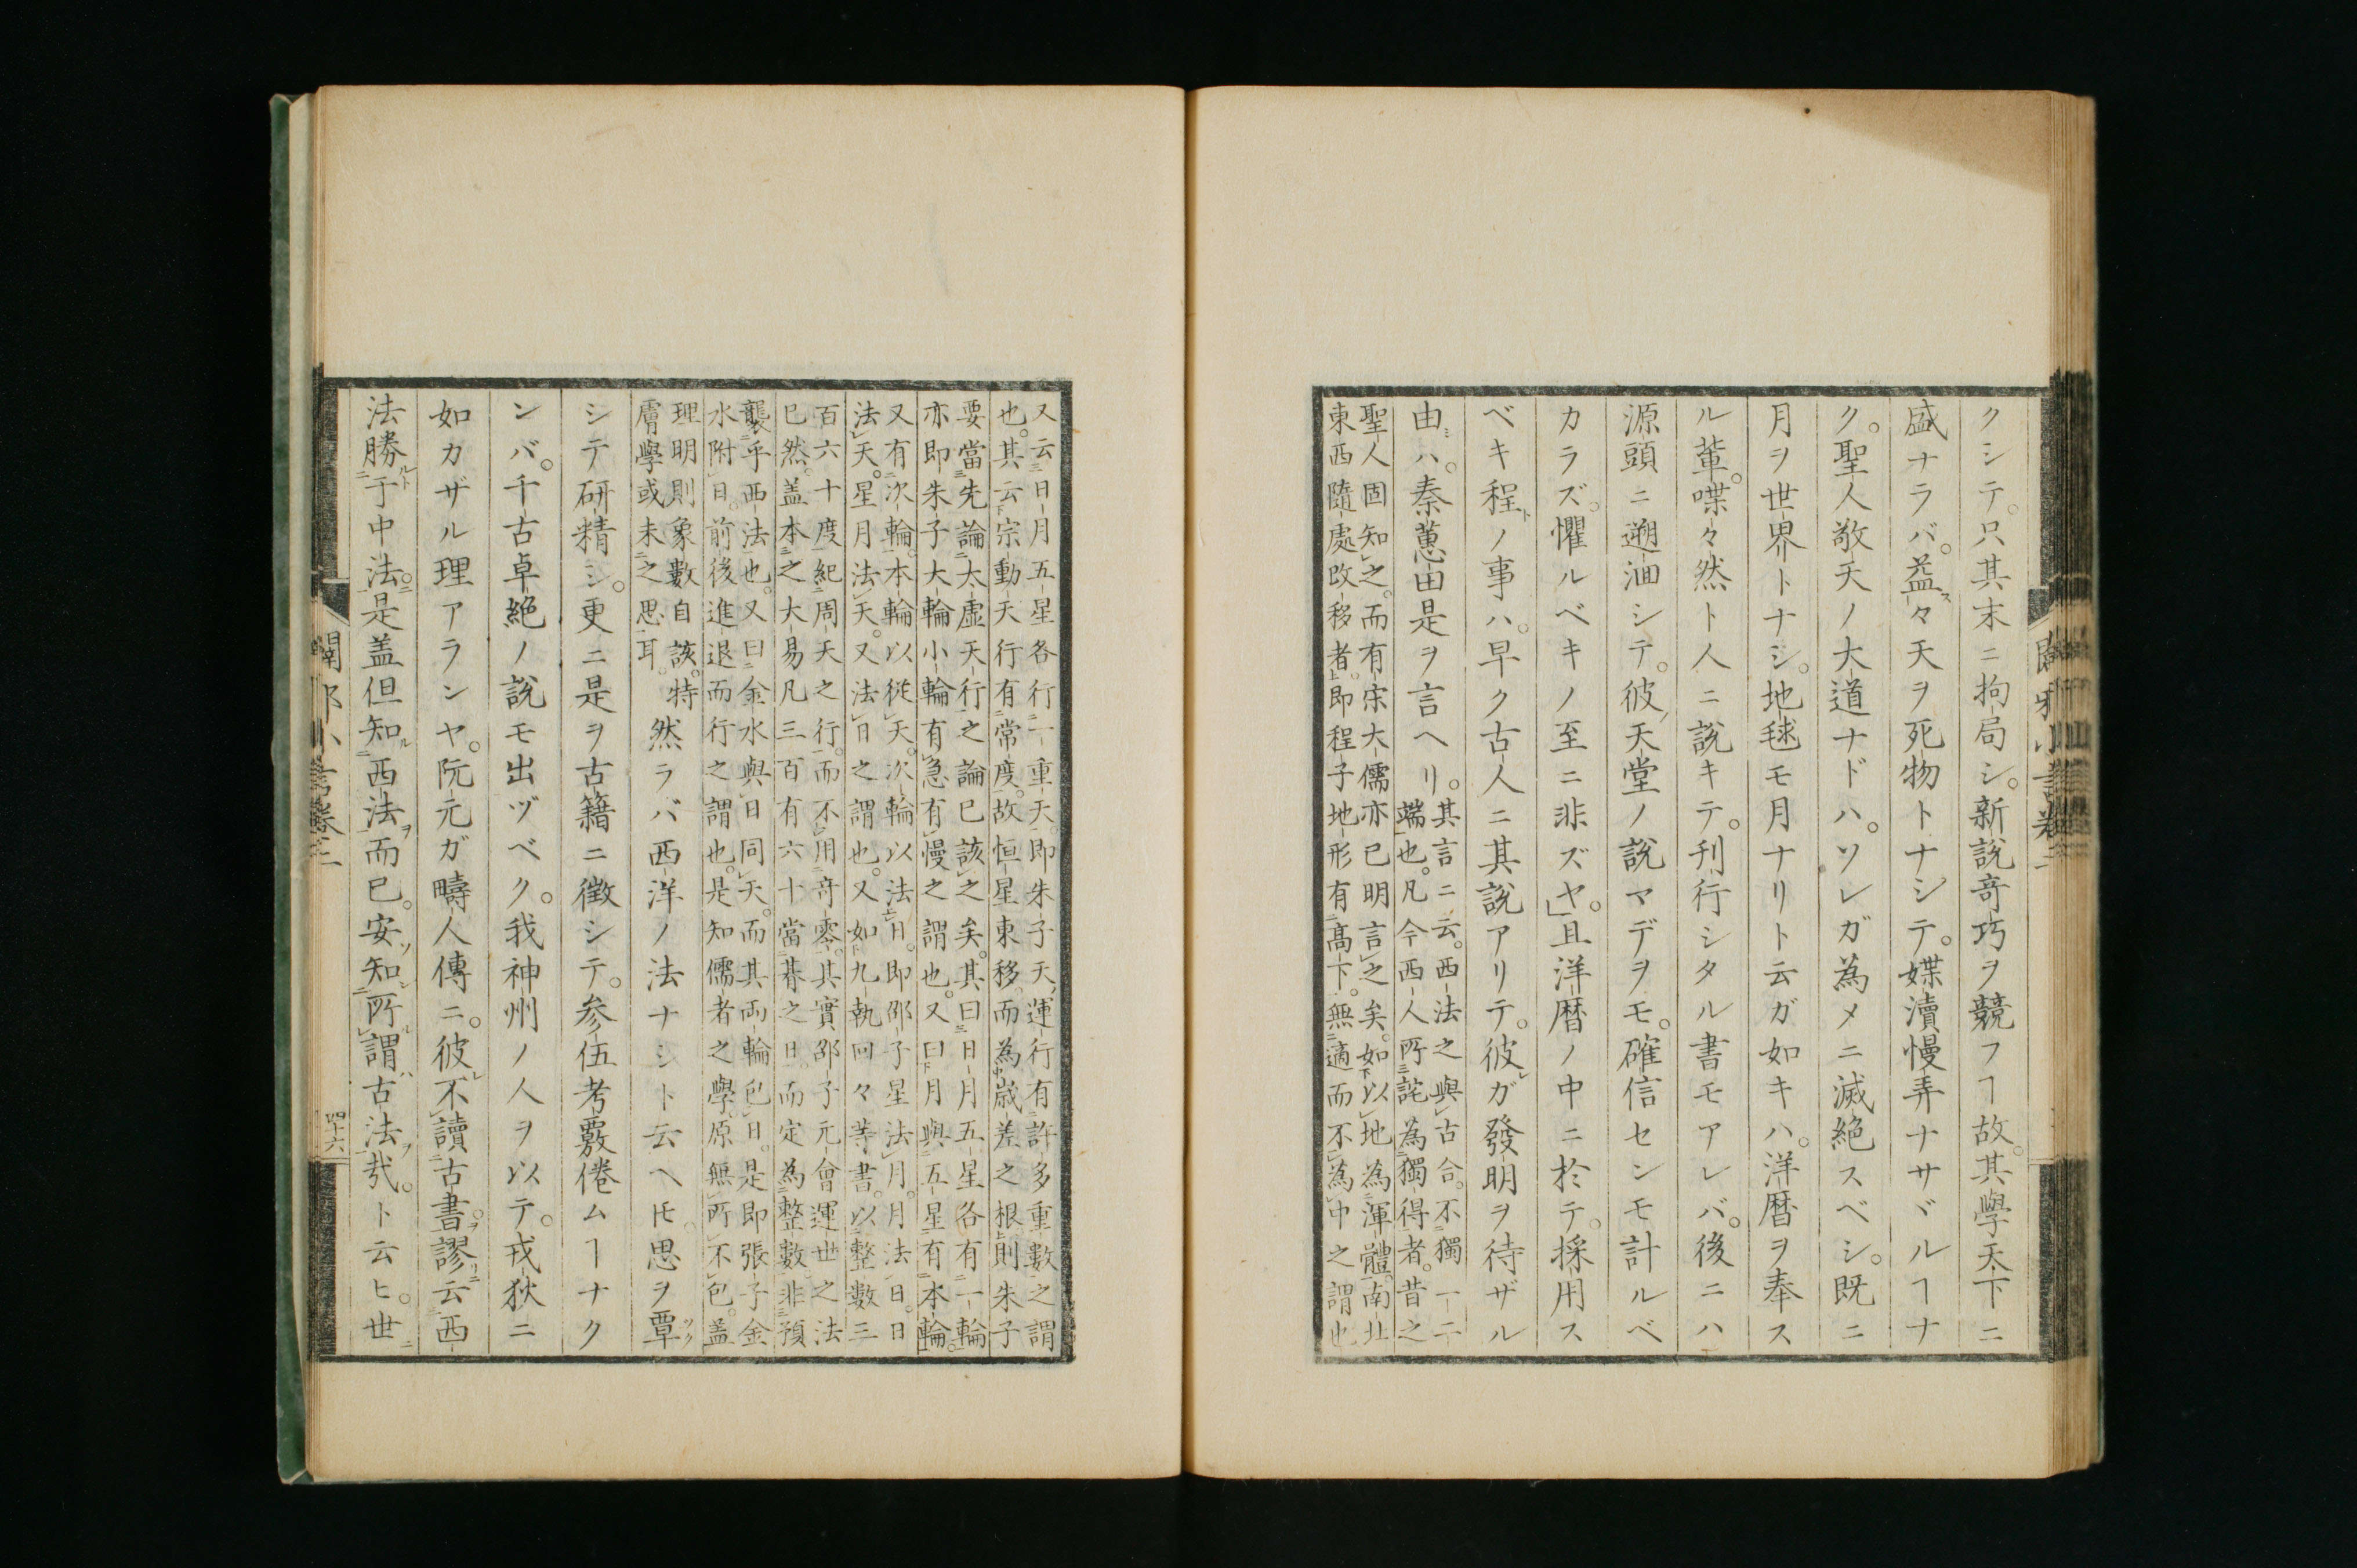 クシテ。只其末ニ拘局シ。新說竒巧ヲ競フヿ故。其學天下ニ
盛ナラバ。益々天ヲ死物トナシテ。媟瀆慢弄ナサヾルヿナ
ク。聖人敬天ノ大道ナドハ。ソレガ為メニ滅絶スベシ。既ニ
月ヲ世界トナシ。地毬モ月ナリト云ガ如キハ。洋曆ヲ奉ス
ル輩。喋々然ト人ニ說キテ。刊行シタル書モアレバ。後ニハ
源頭ニ遡洄シテ。彼ノ天堂ノ說マデヲモ。確信センモ計ルベ
カラズ。懼ルベキノ至ニ非ズヤ。」且洋曆ノ中ニ於テ。採用ス
ベキ程ノ事ハ。早ク古人ニ其說アリテ。彼レガ發明ヲ待ザル
由ハ。秦蕙田是ヲ言ヘリ。
其言ニ云。西法之與古合。不獨一二
端也。凡今西人所詫為獨得者。昔之
聖人固知之。而有宋大儒亦已明言之矣。如以地為渾體。南北
東西隨處改移者。即程子地形有高下。無適而不為中之謂也
又云日月五星各行一重天。即朱子天運行有許多重數之謂
也。其云宗動天行有常度。故恒星東移。而為歲差之根。則朱子
要當先論太虛天行之論已該之矣。其曰日月五星各有一輪
亦即朱子大輪小輪有急有慢之謂也。又曰月與五星有本輪。
又有次輪。本輪以從天。次輪以法日。即邵子星法月。月法日。日
法天。星月法天。又法日之謂也。又如九執回々等書。以整數三
百六十度紀周天之行。而不用竒零。其實邵子元會運世之法
已然。盖本之大易凡三百有六十當朞之日。而定為整數。非預
襲乎西法也。又曰金水與日同天。而其兩輪包日。是即張子金
水附日。前後進退而行之謂也。是知儒者之學。原無所不包。盖
理明則象數自該。特
膚學或未之思耳。
然ラバ西洋ノ法ナシト云ヘ𪜈。思ヲ覃
シテ研精シ。更ニ是ヲ古籍ニ徵シテ。参伍考覈倦ムヿナク
ンバ。千古卓絶ノ說モ出ヅベク。我神州ノ人ヲ以テ。戎狄ニ
如カザル理アランヤ。阮元ガ疇人傳ニ。彼不讀古書。謬云西
法勝于中法。是盖但知西法而已。安知所謂古法哉。ト云ヒ。世
闢邪小言卷之二
四十六